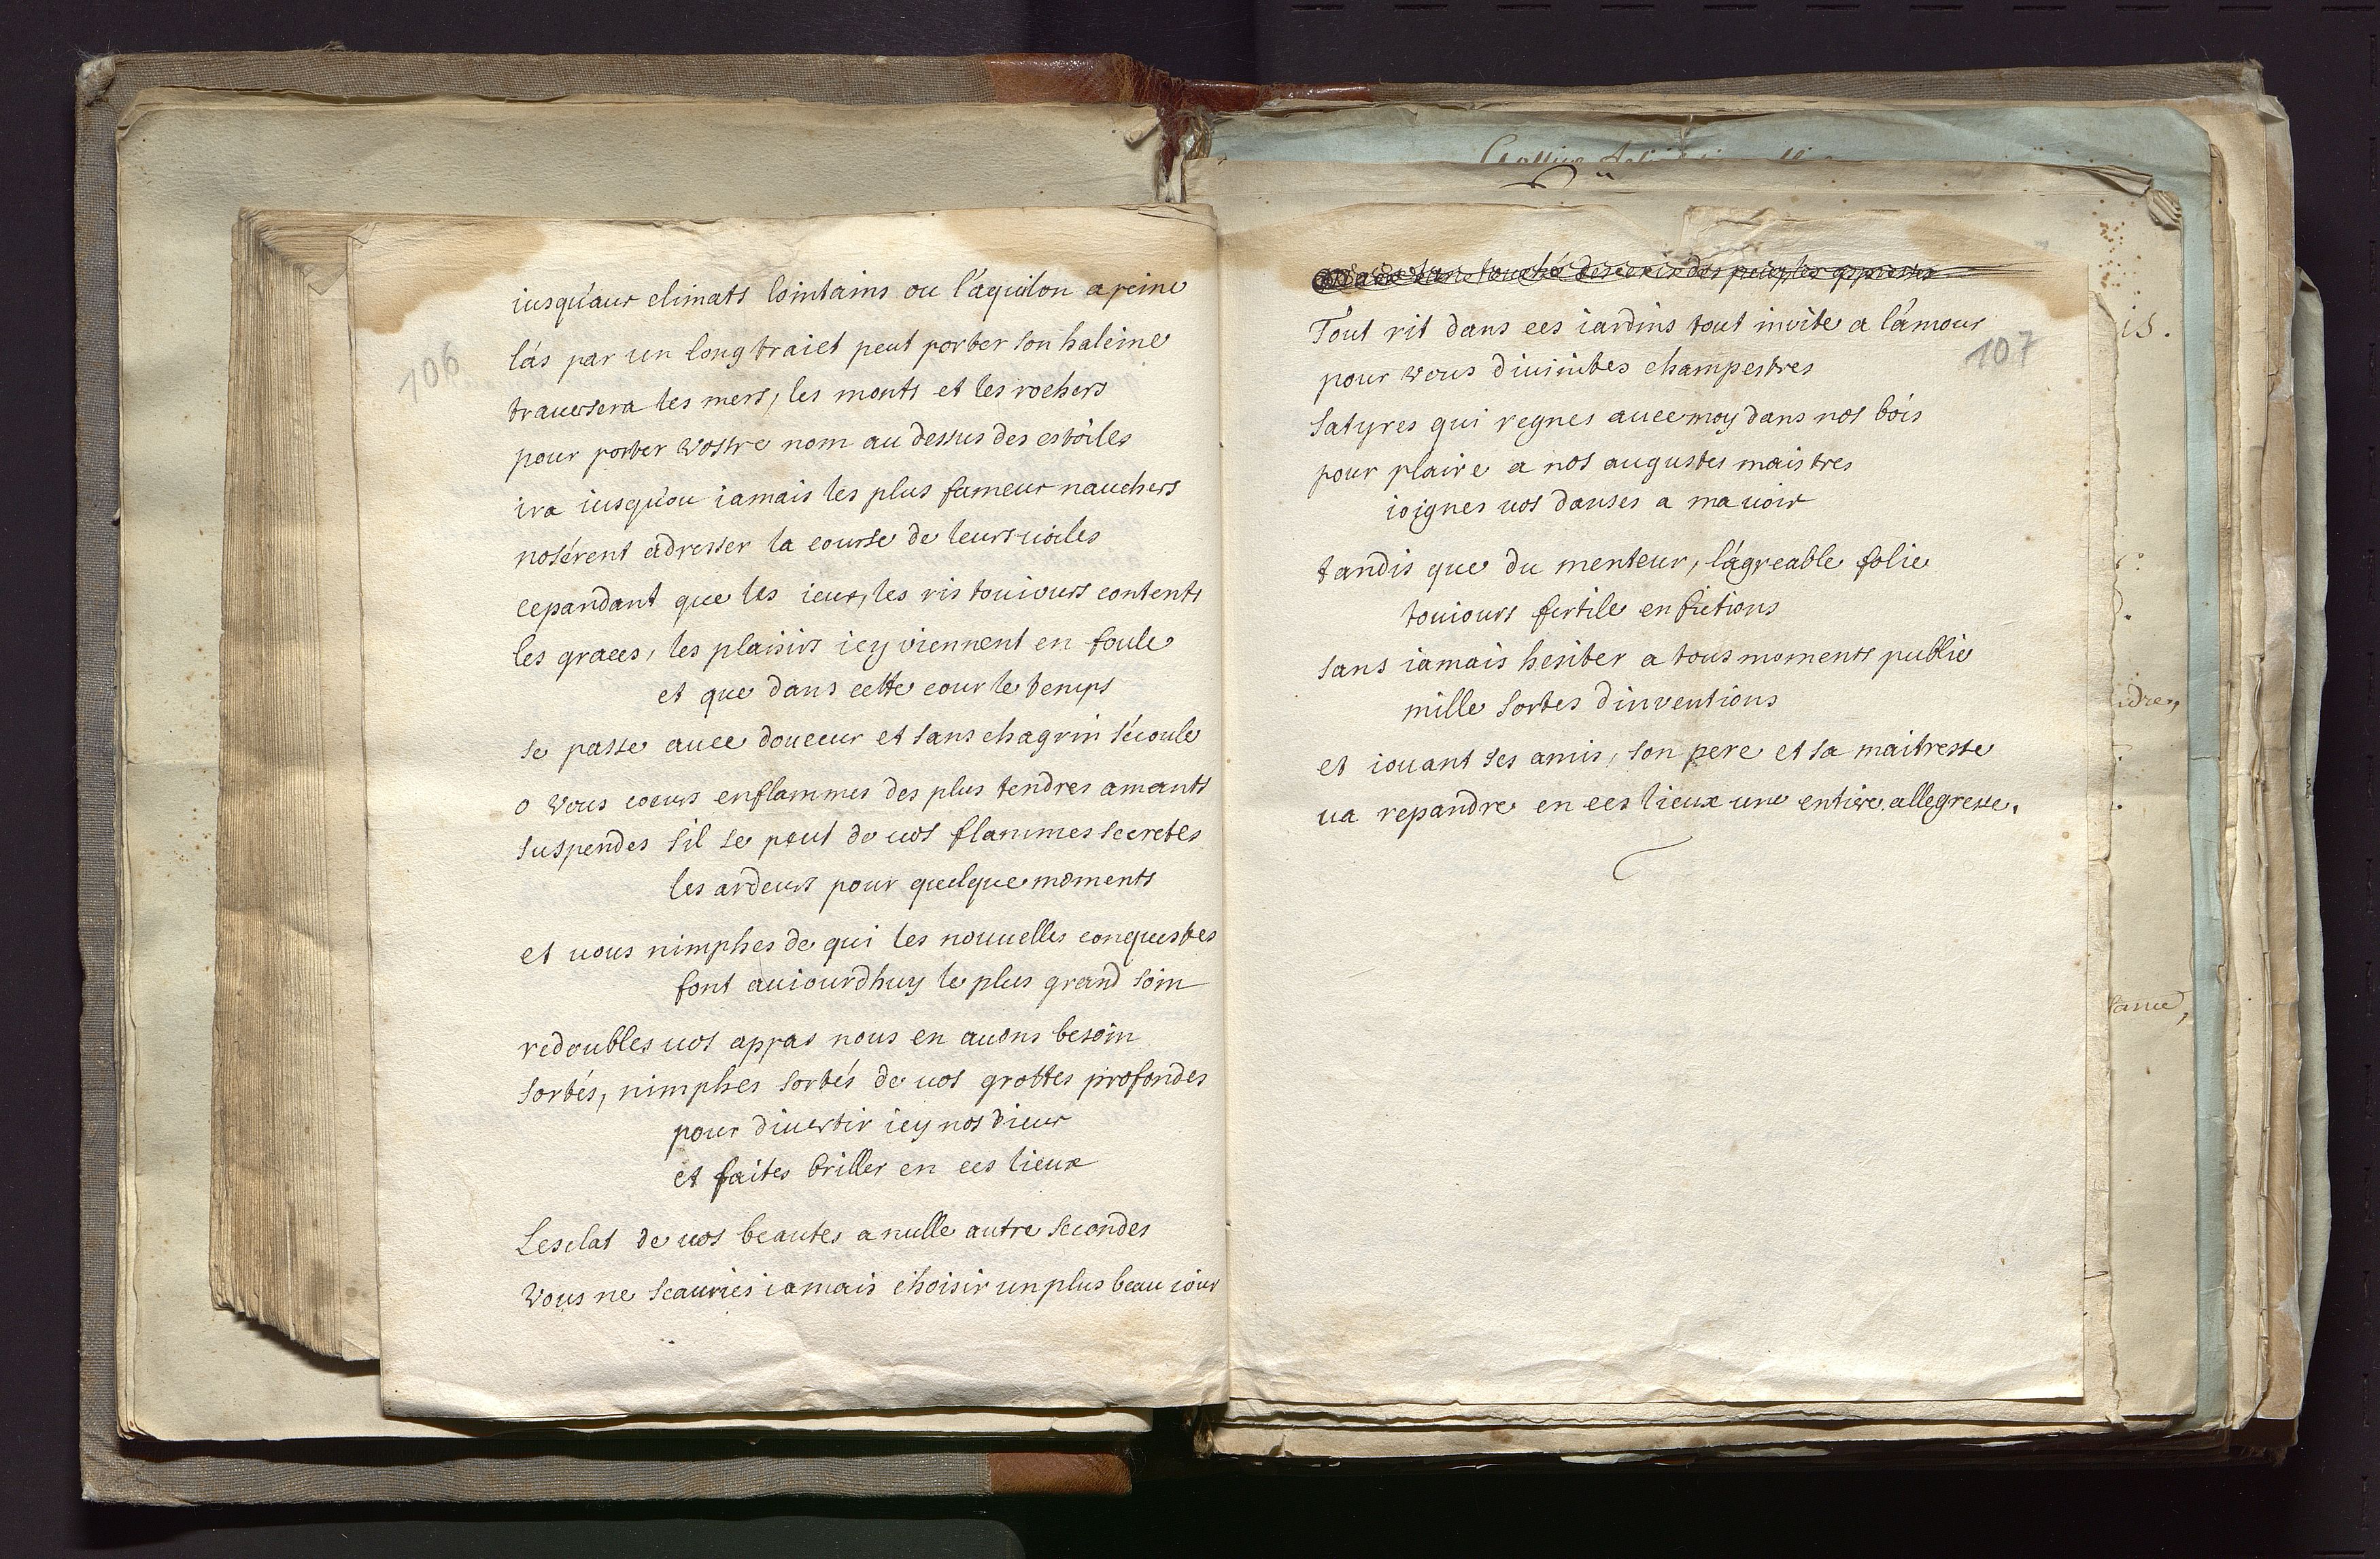 106
iusqu'aux climats lointains ou l'aquilon a peine
lás par un long traiet peut porter son haleine
trauersera les mers, les monts et les rochers
pour porter vostre nom au dessus des estoiles
ira iusqu'ou iamais les plus fameux nauchers
nosérent adresser la course de leurs uoiles
cepandant que les ieux, les ris touiours contents
les graces, les plaisirs icy viennent en foule
et que dans cette cour le temps
se passe auec douceur et sans chagrin s'écoule
o vous coeurs enflammes des plus tendres amants
suspendes s'il se peut de uos flammes secretes
les ardeurs pour quelque moments
et uous nimphes de qui les nouuelles conquestes
font auiourdhuy le plus grand soin
redoubles uos appas nous en auons besoin
sortés, nimphes sortés de uos grottes profondes
pour diuertir icy nos dieux
et faites briller en ces lieux
Lesclat de uos beautes a nulle autre secondes
vous ne scauries iamais choisir un plus beau iour
107
des peuples
Tout rit dans ces iardins tout inuite a l'amour
pour vous diuinites champestres
satyres qui regnes auec moy dans nos bois
pour plaire a nos augustes maistres
ioignes uos danses a ma uoix
tandis que du menteur, l'agreable folie
touiours fertile en fictions
sans iamais hesiter a tous moments publie
mille sortes dinventions
et iouant ses amis, son pere et sa maitresse
ua repandre en ces lieux une entiere allegresse.
is.